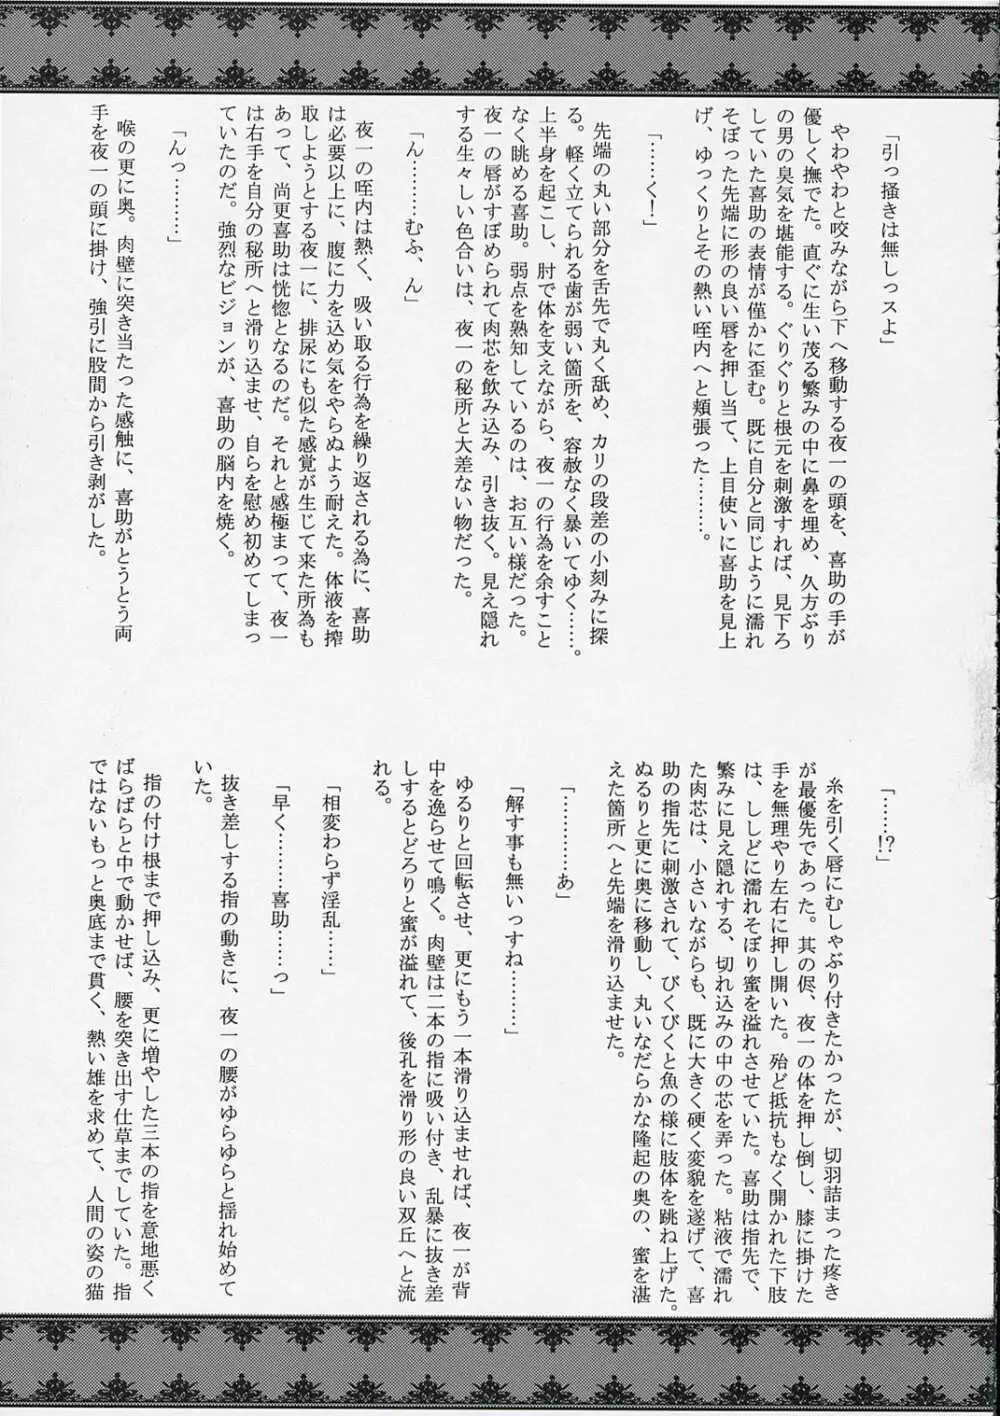 「引っ掻きは無しっスよ」
やわやわと咬みながら下へ移動する夜一の頭を、喜助の手が
優しく撫でた。直ぐに生い茂る繁みの中に鼻を埋め、久方ぶり
の男の臭気を堪能する。ぐりぐりと根元を刺激すれば、見下ろ
していた喜助の表情が僅かに歪む。既に自分と同じように濡れ
そぼった先端に形の良い唇を押し当て、上目使いに喜助を見上
げ、ゆっくりとその熱い咥内へと頬張った………。
「……く！」
先端の丸い部分を舌先で丸く舐め、カリの段差の小刻みに探
る。軽く立てられる歯が弱い箇所を、容赦なく暴いてゆく……。
上半身を起こし、肘で体を支えながら、夜一の行為を余すこと
なく眺める喜助。弱点を熟知しているのは、お互い様だった。
夜一の唇がすぼめられて肉芯を飲み込み、引き抜く。見え隠れ
する生々しい色合いは、夜一の秘所と大差ない物だった。
「ん………むふ、ん」
夜一の咥内は熱く、吸い取る行為を繰り返される為に、喜助
は必要以上に、腹に力を込め気をやらぬよう耐えた。体液を搾
取しようとする夜一に、排尿にも似た感覚が生じて来た所為も
あって、尚更喜助は恍惚となるのだ。それと感極まって、夜一
は右手を自分の秘所へと滑り込ませ、自らを慰め初めてしまっ
ていたのだ。強烈なビジョンが、喜助の脳内を焼く。
「んっ………」
喉の更に奥。肉壁に突き当たった感触に、喜助がとうとう両
手を夜一の頭に掛け、強引に股間から引き剥がした。
「……!?」
糸を引く唇にむしゃぶり付きたかったが、切羽詰まった疼き
が最優先であった。其の侭、夜一の体を押し倒し、膝に掛けた
手を無理やり左右に押し開いた。殆ど抵抗もなく開かれた下肢
は、ししどに濡れそぼり蜜を溢れさせていた。喜助は指先で、
繁みに見え隠れする、切れ込みの中の芯を弄った。粘液で濡れ
た肉芯は、小さいながらも、既に大きく硬く変貌を遂げて、喜
助の指先に刺激されて、びくびくと魚の様に肢体を跳ね上げた。
ぬるりと更に奥に移動し、丸いなだらかな隆起の奥の、蜜を湛
えた箇所へと先端を滑り込ませた。
「…………あ」
「解す事も無いっすね………」
ゆるりと回転させ、更にもう一本滑り込ませれば、夜一が背
中を逸らせて鳴く。肉壁は二本の指に吸い付き、乱暴に抜き差
しするとどろりと蜜が溢れて、後孔を滑り形の良い双丘へと流
れる。
「相変わらず淫乱……」
「早く………喜助……っ」
抜き差しする指の動きに、夜一の腰がゆらゆらと揺れ始めて
いた。
指の付け根まで押し込み、更に増やした三本の指を意地悪く
ばらばらと中で動かせば、腰を突き出す仕草までしていた。指
ではないもっと奥底まで貫く、熱い雄を求めて、人間の姿の猫